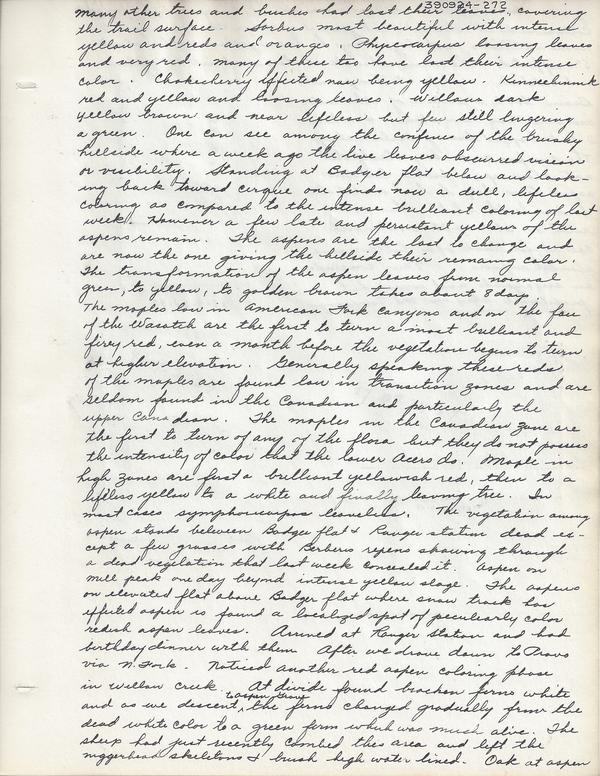 390924-272
many other trees and bushes had lost their leaves, covering
the trail surface. Sorbus most beautiful with intense
yellow and reds and oranges. Physocarpus loosing leaves
and very red. Many of these too have lost their intense
color. Chokecherry effected now being yellow. Kinnechinnik
red and yellow and loosing leaves. Willows dark
yellow brown and near lifeless but few still lingering
a green. One can see among the confines of the brushy
hillside where a week ago the live leaves obscurred vision
or visibility. Standing at Badger flat below and look-
ing back toward cirque one finds now a dull, lifeless
coloring as compared to the intense brilliant coloring of last
week. However a few late and persistant yellows of the
aspens remain. The aspens are the last to change and
are now the one giving the hillside their remaing color.
The transformation of the aspen leaves from normal
green, to yellow, to golden brown takes about 8 days.
The maples low in American Fork Canyons and on the face
of the Wasatch are the first to turn a most brilliant and
firey red, even a month before the vegetation begins to turn
at higher elevation. Generally speaking these reds
of the maples are found low in transition zones and are
seldom found in the Canadian and particularly the
upper Canadian. The maples in the Canadian zone are
the first to turn of any of the flora but they do not possess
the intensity of color that the lower Acers do. Maple in
high zones are first a brilliant yellowish red, then to a
lifeless yellow to a white and finally leaving tree. In
most cases symphoricarpos leaveless. The vegetation among
aspen stands between Badger flat & Ranger station dead ex-
cept a few grasses with Berberis repens showing through
a dead vegetation that last week concealed it. Aspen on
mill peak one day beyond intense yellow stage. The aspens
on elevated flat above Badger flat where snow track has
effected aspen is found a localized spot of peculearly color
redish aspen leaves. Arrived at Ranger Station and had
birthday dinner with them After we drove down to Provo
via N. Fork. Noticed another red aspen coloring phase
in willow creek. At divide found bracken ferns white
and as we descent, to aspen grove the ferns changed gradually from the
dead white color to a green form which was much alive. The
sheep had just recently combed thes area and left the
niggerhead skeletons & brush high water lined. Oak at aspen